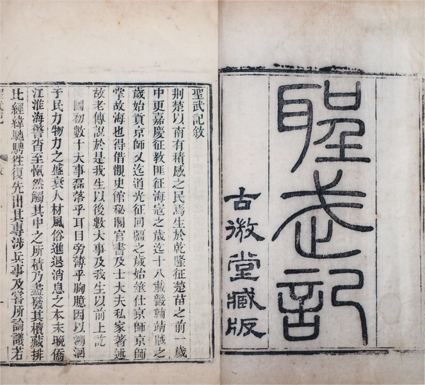 聖武記
古微堂藏版
聖武記敘
荊楚以南有積感之民焉生於乾隆征楚苗之前一歲
中更嘉慶征教匪征海寇之歲迄十八載畿輔靖賊之
歲始貢京師又迄道光征回疆之歲始筮仕京師京師
掌故海也得借觀史館秘閣官書及士大夫私家著述
故老傳說於是我生以後數大事及我生以前上訖
國初數十大事磊落乎耳目旁薄乎胸臆因以溯洄
于民力物力之盛衰人材風俗進退消息之本末晚僑
江淮海警沓至愾然觸其中之所積乃盡發其櫝藏排
比經緯馳騁往復先出其專涉兵事及嘗所論議若